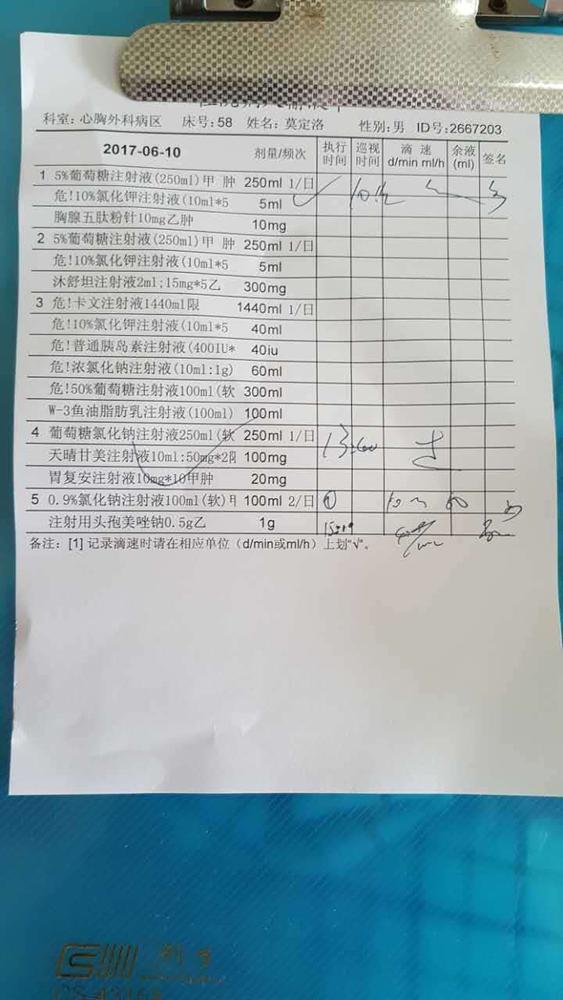 科室：心胸外科病区 床号：58 姓名：莫定洛 性别：男 ID号：2667203
2017-06-10 剂量/频次 执行时间 巡视时间 滴速 d/min ml/h 余液(ml) 签名
1 5%葡萄糖注射液(250ml)甲 肿 250ml 1/日
危!10%氯化钾注射液(10ml*5 5ml
胸腺五肽粉针10mg乙肿 10mg
2 5%葡萄糖注射液(250ml)甲 肿 250ml 1/日
危!10%氯化钾注射液(10ml*5 5ml
沐舒坦注射液2ml;15mg*5乙 300mg
3 危!卡文注射液1440ml限 1440ml 1/日
危!10%氯化钾注射液(10ml*5 40ml
危!普通胰岛素注射液(400IU* 40iu
危!浓氯化钠注射液(10ml:1g) 60ml
危!50%葡萄糖注射液100ml(软 300ml
W-3鱼油脂肪乳注射液(100ml) 100ml
4 葡萄糖氯化钠注射液250ml(软 250ml 1/日 13:00
天晴甘美注射液10ml:50mg*2 100mg
胃复安注射液10mg*10甲肿 20mg
5 0.9%氯化钠注射液100ml(软)甲 100ml 2/日 ①
注射用头孢美唑钠0.5g乙 1g
备注：[1] 记录滴速时请在相应单位（d/min或ml/h）上划"√"。